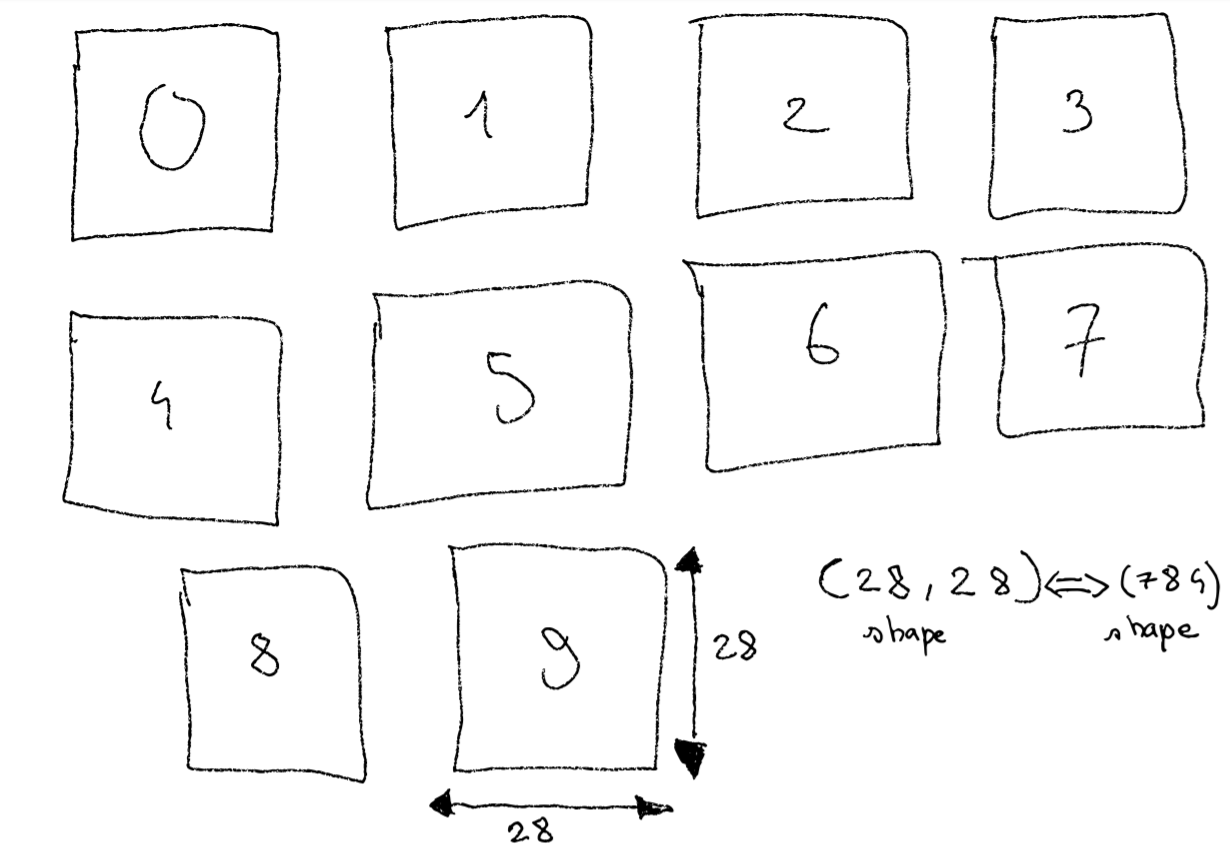 0 1 2 3
4 5 6 7
8 9
28
28
(28, 28) ⟺ (784)
shape shape